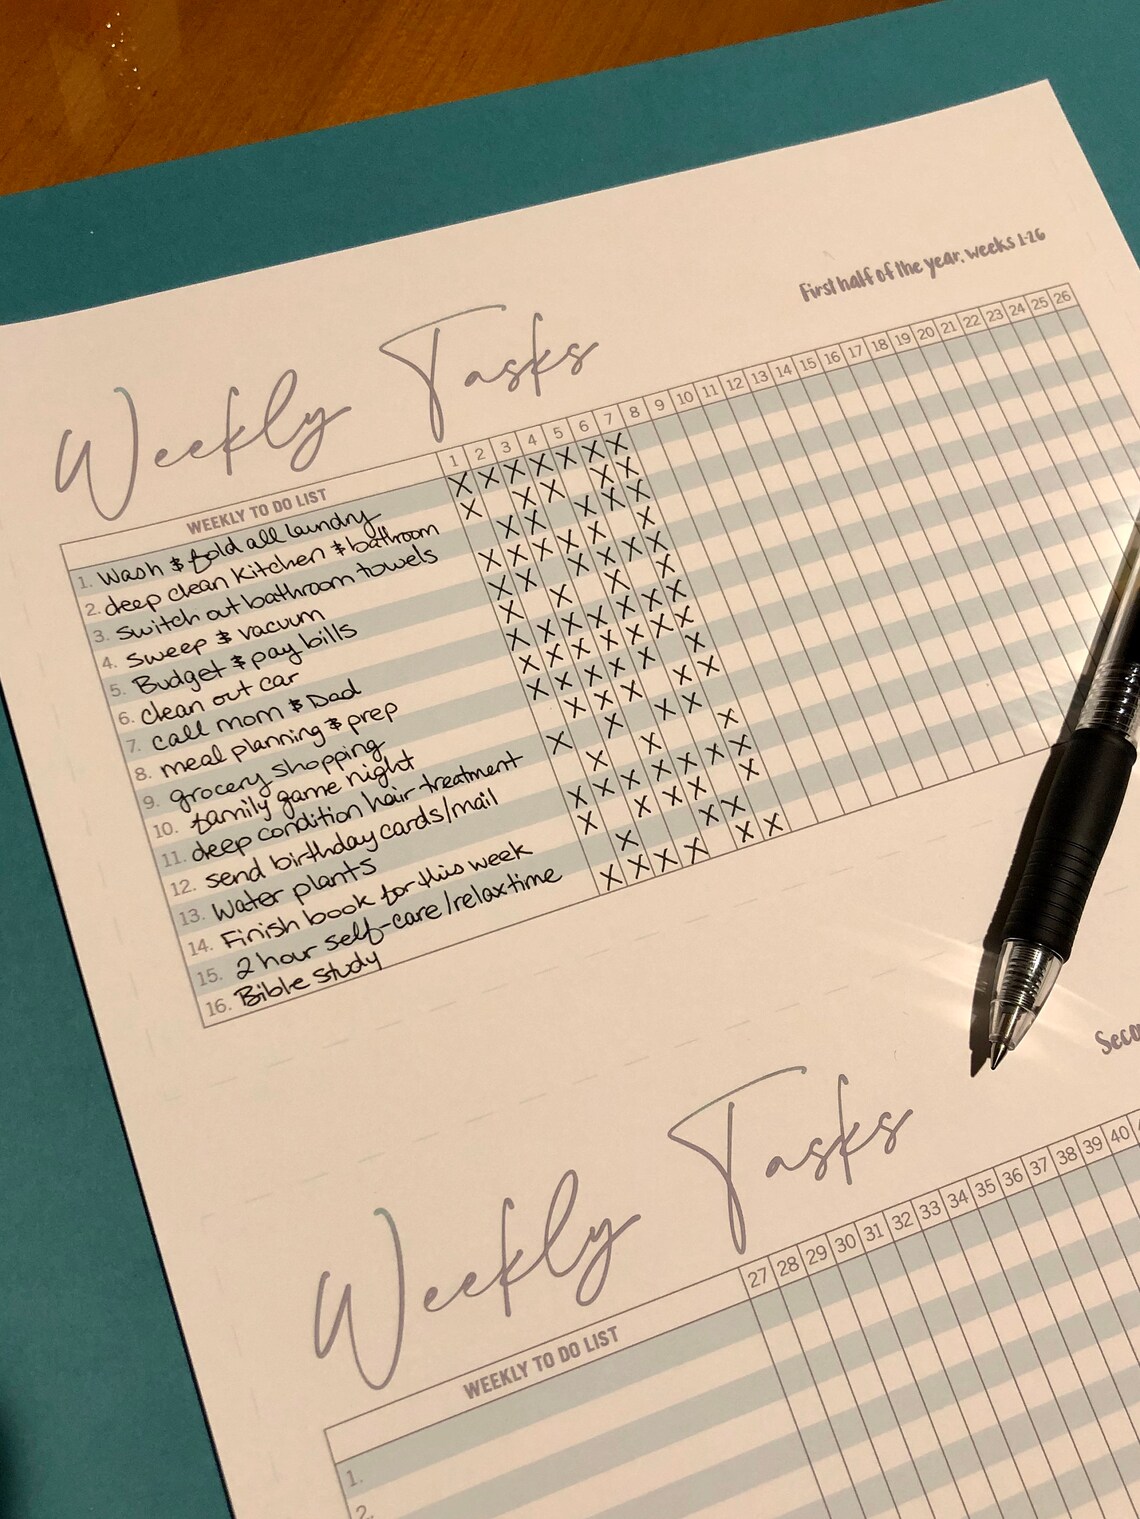 First half of the year. weeks 1-26
Weekly Tasks
WEEKLY TO DO LIST 1 2 3 4 5 6 7 8 9 10 11 12 13 14 15 16 17 18 19 20 21 22 23 24 25 26
1. Wash & fold all laundry X X X X X X X
2. deep clean kitchen & bathroom X X X X X
3. switch out bathroom towels X X X X X
4. sweep & vacuum X X X X X X
5. Budget & pay bills X X X X X X
6. clean out car X X X X
7. call mom & Dad X X X X X X X
8. meal planning & prep X X X X X X X
9. grocery shopping X X X X X X
10. family game night X X X X X
11. deep condition hair treatment X X X X
12. send birthday cards/mail X X X
13. Water plants X X X X X X X
14. Finish book for this week X X X X X
15. 2 hour self-care/relax time X X X
16. Bible study X X X X X X
Seco
Weekly Tasks
WEEKLY TO DO LIST 27 28 29 30 31 32 33 34 35 36 37 38 39 40
1.
2.